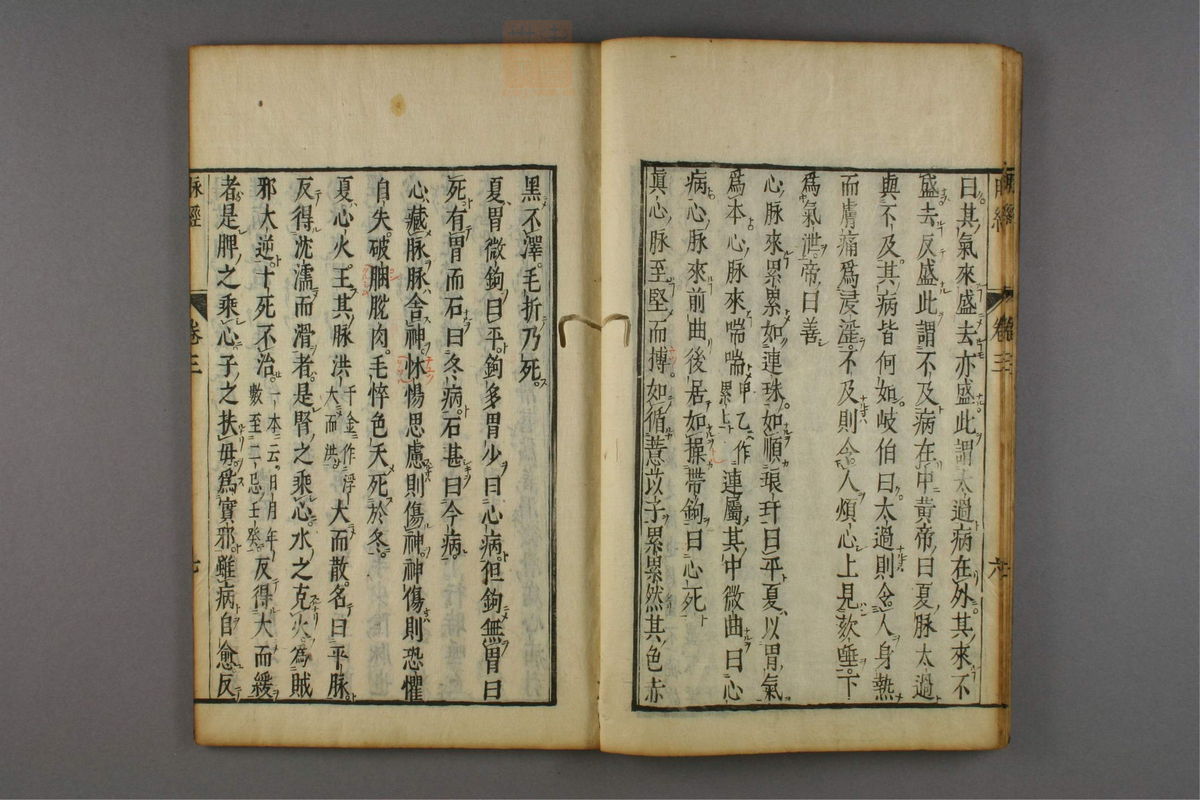 曰其氣來盛去亦盛此謂太過病在外其來不
盛去反盛此謂不及病在中黃帝曰夏脉太過
與不及其病皆何如岐伯曰太過則令人身熱
而膚痛爲浸淫不及則令人煩心上見欬唾下
爲氣泄帝曰善
心脉來累累如連珠如順琅玕曰平夏以胃氣
爲本心脉來喘喘甲乙作累累上連屬其中微曲曰心
病心脉來前曲後居如操帶鉤曰心死
眞心脉至堅而搏如循薏苡子累累然其色赤
脉經
卷三
六
黑不澤毛折乃死
夏胃微鉤曰平鉤多胃少曰心病但鉤無胃曰
死胃而有石曰冬病石甚曰今病
心藏脉脉舍神怵惕思慮則傷神神傷則恐懼
自失破䐃脫肉毛悴色夭死於冬
夏心火王其脉洪千金作浮大而洪大而散名曰平脉
反得沈濡而滑者是腎之乘心水之克火爲賊
邪大逆十死不治一本云日月年數至二忌壬癸反得大而緩
者是脾之乘心子之扶母爲實邪雖病自愈反
脉經
卷三
七